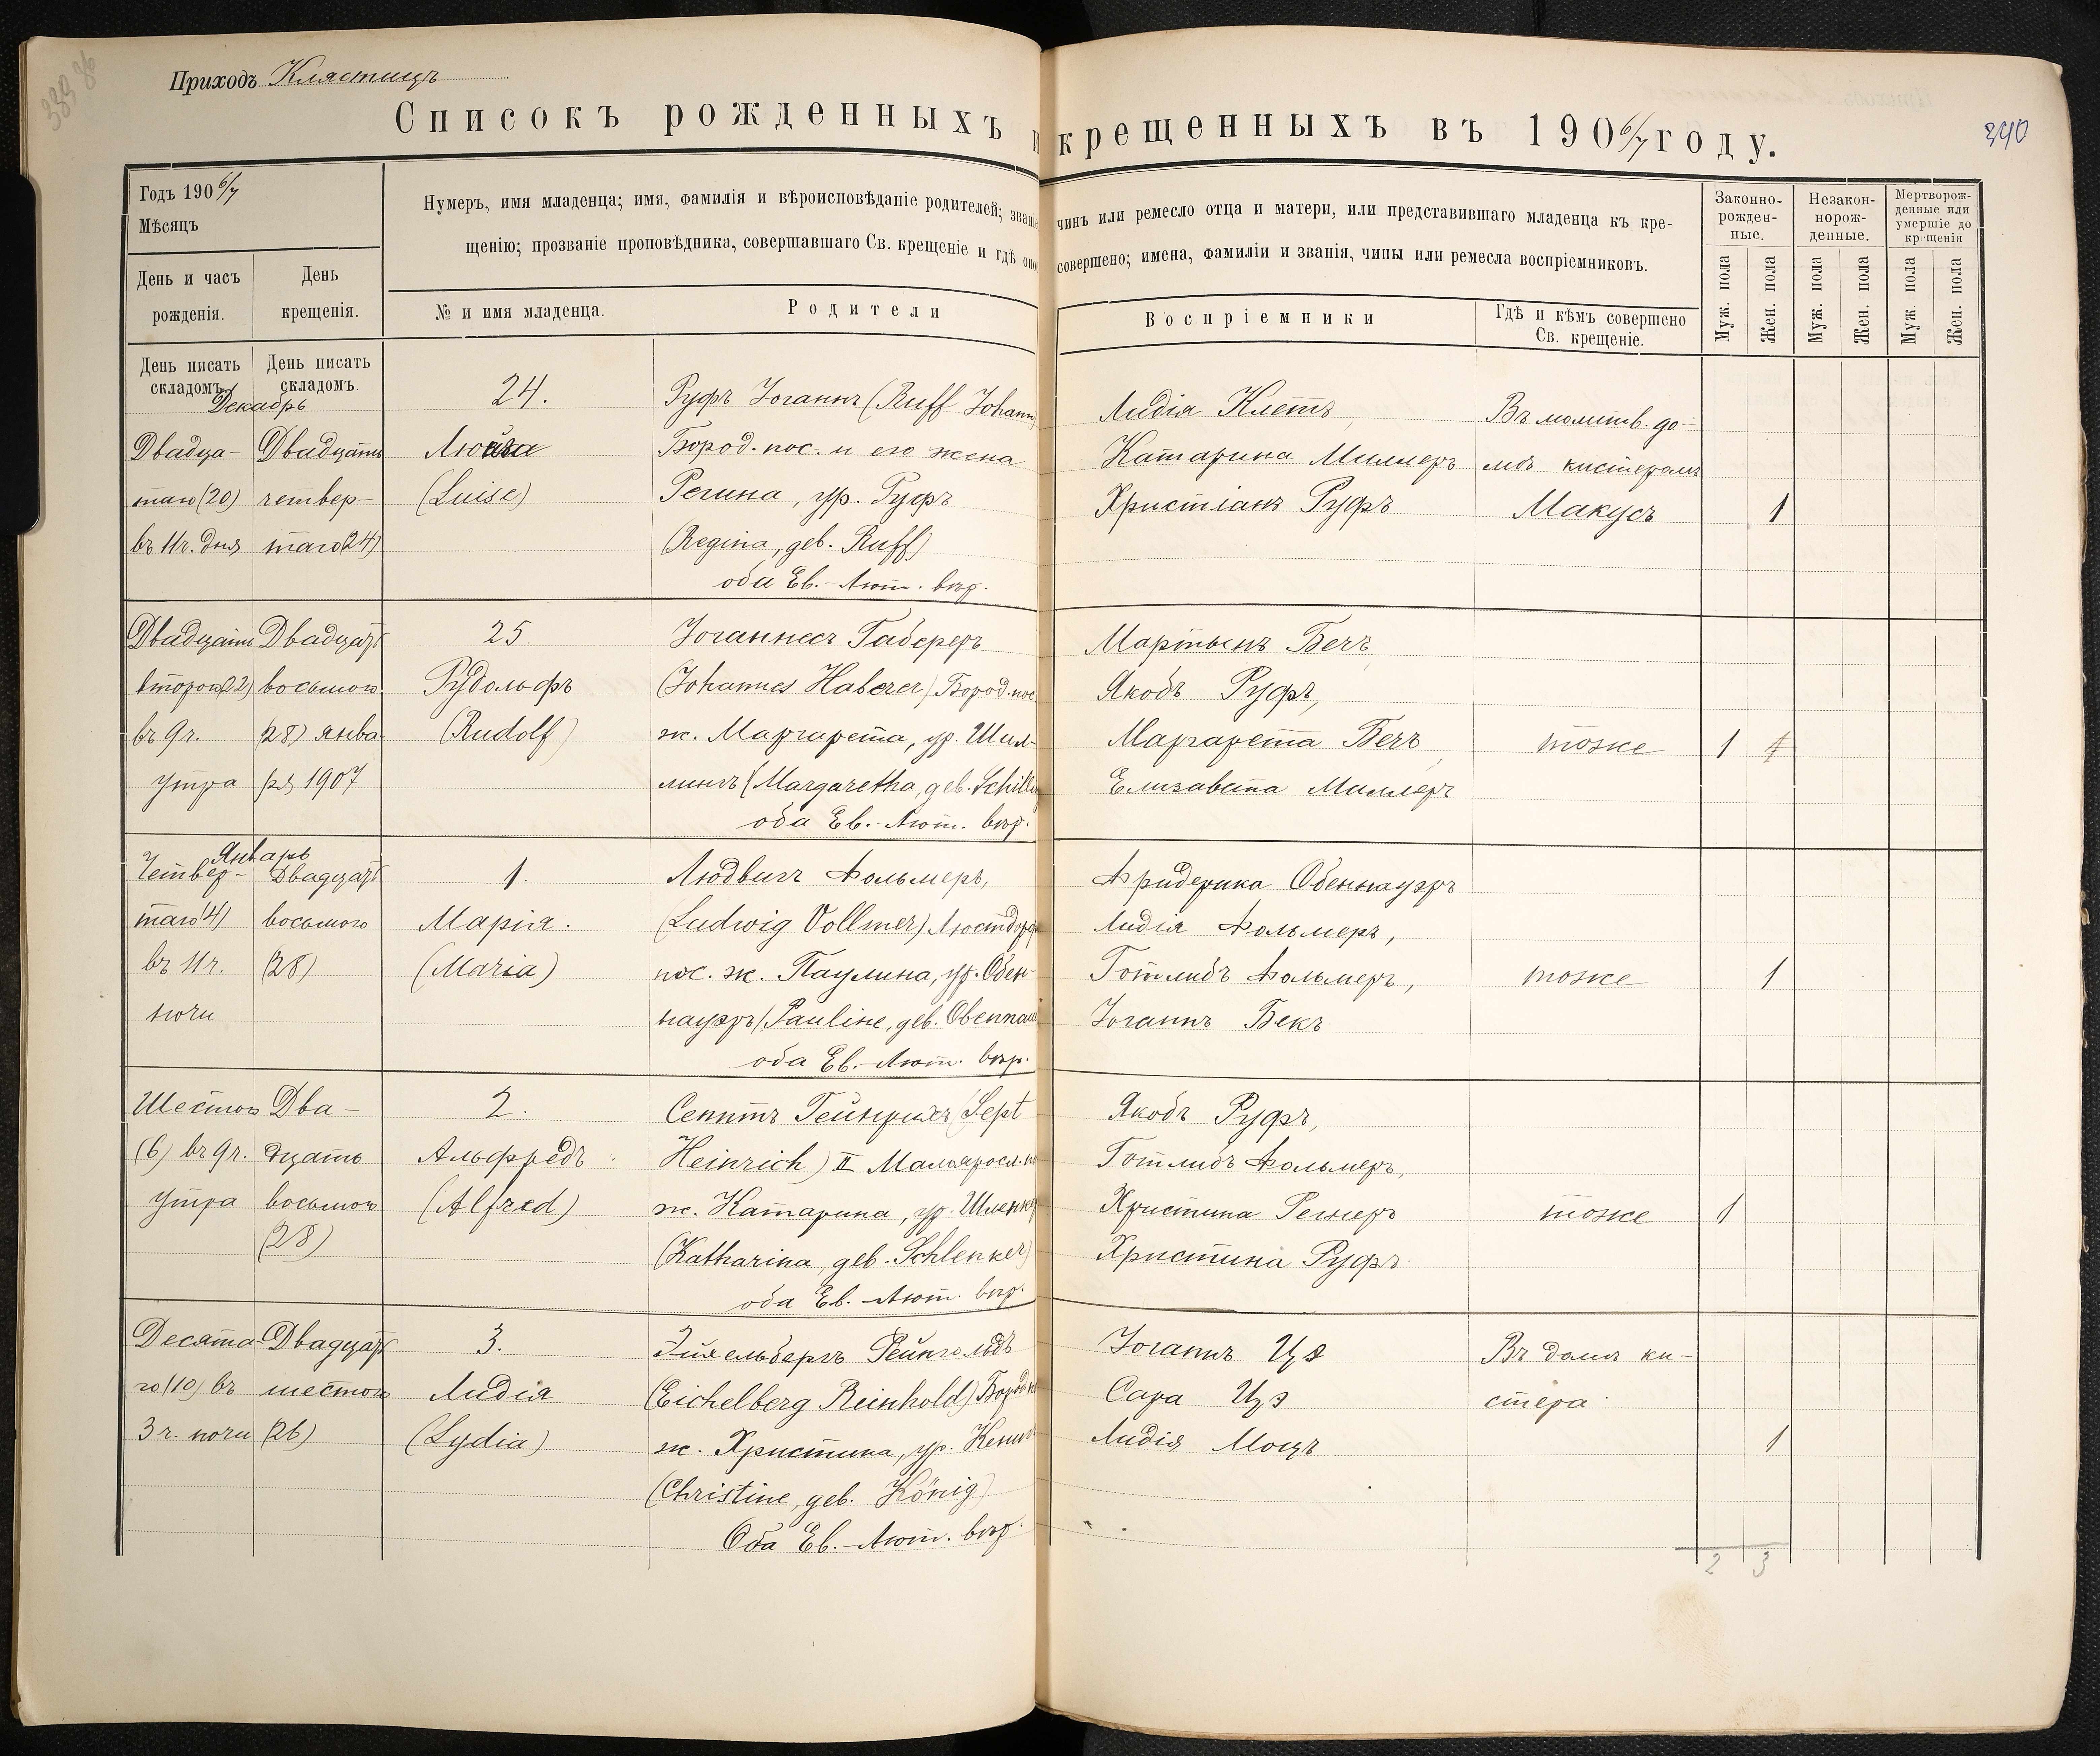 Приходъ Клястицъ
Списокъ рожденныхъ и крещенныхъ въ 1906/7 году.
340
Годъ 1906/7
Мѣсяцъ
Нумеръ, имя младенца; имя, фамилія и вѣроисповѣданіе родителей; званіе чинъ или ремесло отца и матери, или представившаго младенца къ кре-
щенію; прозваніе проповѣдника, совершавшаго Св. крещеніе и гдѣ оное совершено; имена, фамиліи и званія, чины или ремесла воспріемниковъ.
Законно-
рожден-
ные.
Незакон-
норож-
денные.
Мертворож-
денные или
умершіе до
крещенія
День и часъ
рожденія.
День
крещенія.
№ и имя младенца.
Родители
Воспріемники
Гдѣ и кѣмъ совершено
Св. крещеніе.
Муж. пола
Жен. пола
Муж. пола
Жен. пола
Муж. пола
Жен. пола
День писать
складомъ.
День писать
складомъ.
Декабрь
Двадца-
таго (20)
въ 11 ч. дня
Двадцать
четвер-
таго 24)
24.
(Luise)
Руфъ Іоганнъ (Ruff Johann
Бород. пос. и его жена
Регина, ур. Руфъ
(Regina, geb. Ruff)
оба Ев.-Лют. вѣр.
Лидія Клетъ
Катарина Миллеръ
Христіанъ Руфъ
Въ молитв. до-
мѣ кистеромъ
Макусъ
1
Двадцать
второго 22)
въ 9 ч.
утра
Двадцать
восьмого
(28) янва
ря 1907
25.
Рудольфъ
(Rudolf)
Іоганнесъ Габереръ
(Johannes Haberer) Бород. пос.
ж. Маргарета, ур. Шил-
лингъ (Margaretha, geb. Schilling
оба Ев.-Лют. вѣр.
Мартынъ Бечъ
Якобъ Руфъ,
Маргарета Бечъ
Елизавета Миллеръ
тоже
1
Январь
Четвер-
таго (4)
въ 11 ч.
ночи
Двадцать
восьмого
(28)
1.
Марія.
(Maria)
Людвигъ Фольмеръ,
(Ludwig Vollmer) Люстдорф
пос. ж. Паулина, ур. Обен-
науэръ (Pauline, geb. Obennau
оба Ев.-Лют. вѣр.
Фридерика Обеннауэръ
Лидія Фольмеръ,
Готлибъ Фольмеръ,
Іоганнъ Бекъ
тоже
1
Шестого
(6) въ 9 ч.
утра
Два-
дцать
восьмого
(28)
2.
Альфредъ
(Alfred)
Сепптъ Гейнрихъ (Sept
Heinrich) II Малояросл. по
ж. Катарина, ур. Шленкер
(Katharina, geb. Schlenker)
оба Ев.-Лют. вѣр.
Якобъ Руфъ,
Готлибъ Фольмеръ,
Христина Регнеръ
Христина Руфъ.
тоже
1
Десята-
го (10) въ
3 ч. ночи
Двадцать
шестого
(26)
3.
Лидія
(Lydia)
Эйхельбергъ Рейнгольдъ
(Eichelberg Reinhold) Бород. п
ж. Христина, ур. Кениг
(Christine, geb. König)
Оба Ев.-Лют. вѣр.
Іоганнъ Цэ
Сара Цэ
Лидія Моцъ
Въ домѣ ки-
стера.
1
2 3